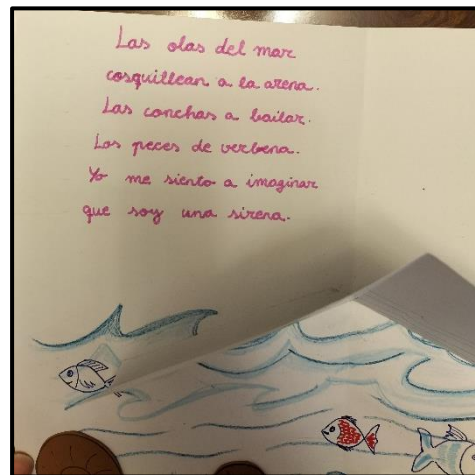 Las olas del mar
cosquillean a la arena.
Las conchas a bailar.
Los peces de verbena.
Yo me siento a imaginar
que soy una sirena.